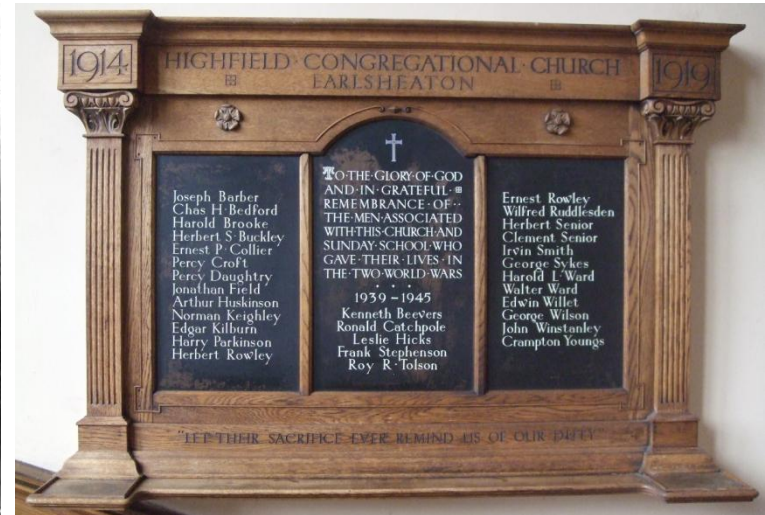 1914
HIGHFIELD · CONGREGATIONAL · CHURCH
EARLSHEATON
1919
Joseph Barber
Chas H· Bedford
Harold Brooke
Herbert S· Buckley
Ernest P· Collier
Percy Croft
Percy Daughtry
Jonathan Field
Arthur Huskinson
Norman Keighley
Edgar Kilburn
Harry Parkinson
Herbert Rowley
TO·THE·GLORY·OF·GOD
AND·IN·GRATEFUL·
REMEMBRANCE·OF··
THE·MEN·ASSOCIATED
WITH·THIS·CHURCH·AND
SUNDAY·SCHOOL·WHO
GAVE·THEIR·LIVES·IN
THE·TWO·WORLD·WARS
1939-1945
Kenneth Beevers
Ronald Catchpole
Leslie Hicks
Frank Stephenson
Roy R·Tolson
Ernest Rowley
Wilfred Ruddlesden
Herbert Senior
Clement Senior
Irvin Smith
George Sykes
Harold L·Ward
Walter Ward
Edwin Willet
George Wilson
John Winstanley
Crampton Youngs
"LET·THEIR SACRIFICE EVER REMIND US OF OUR DUTY"